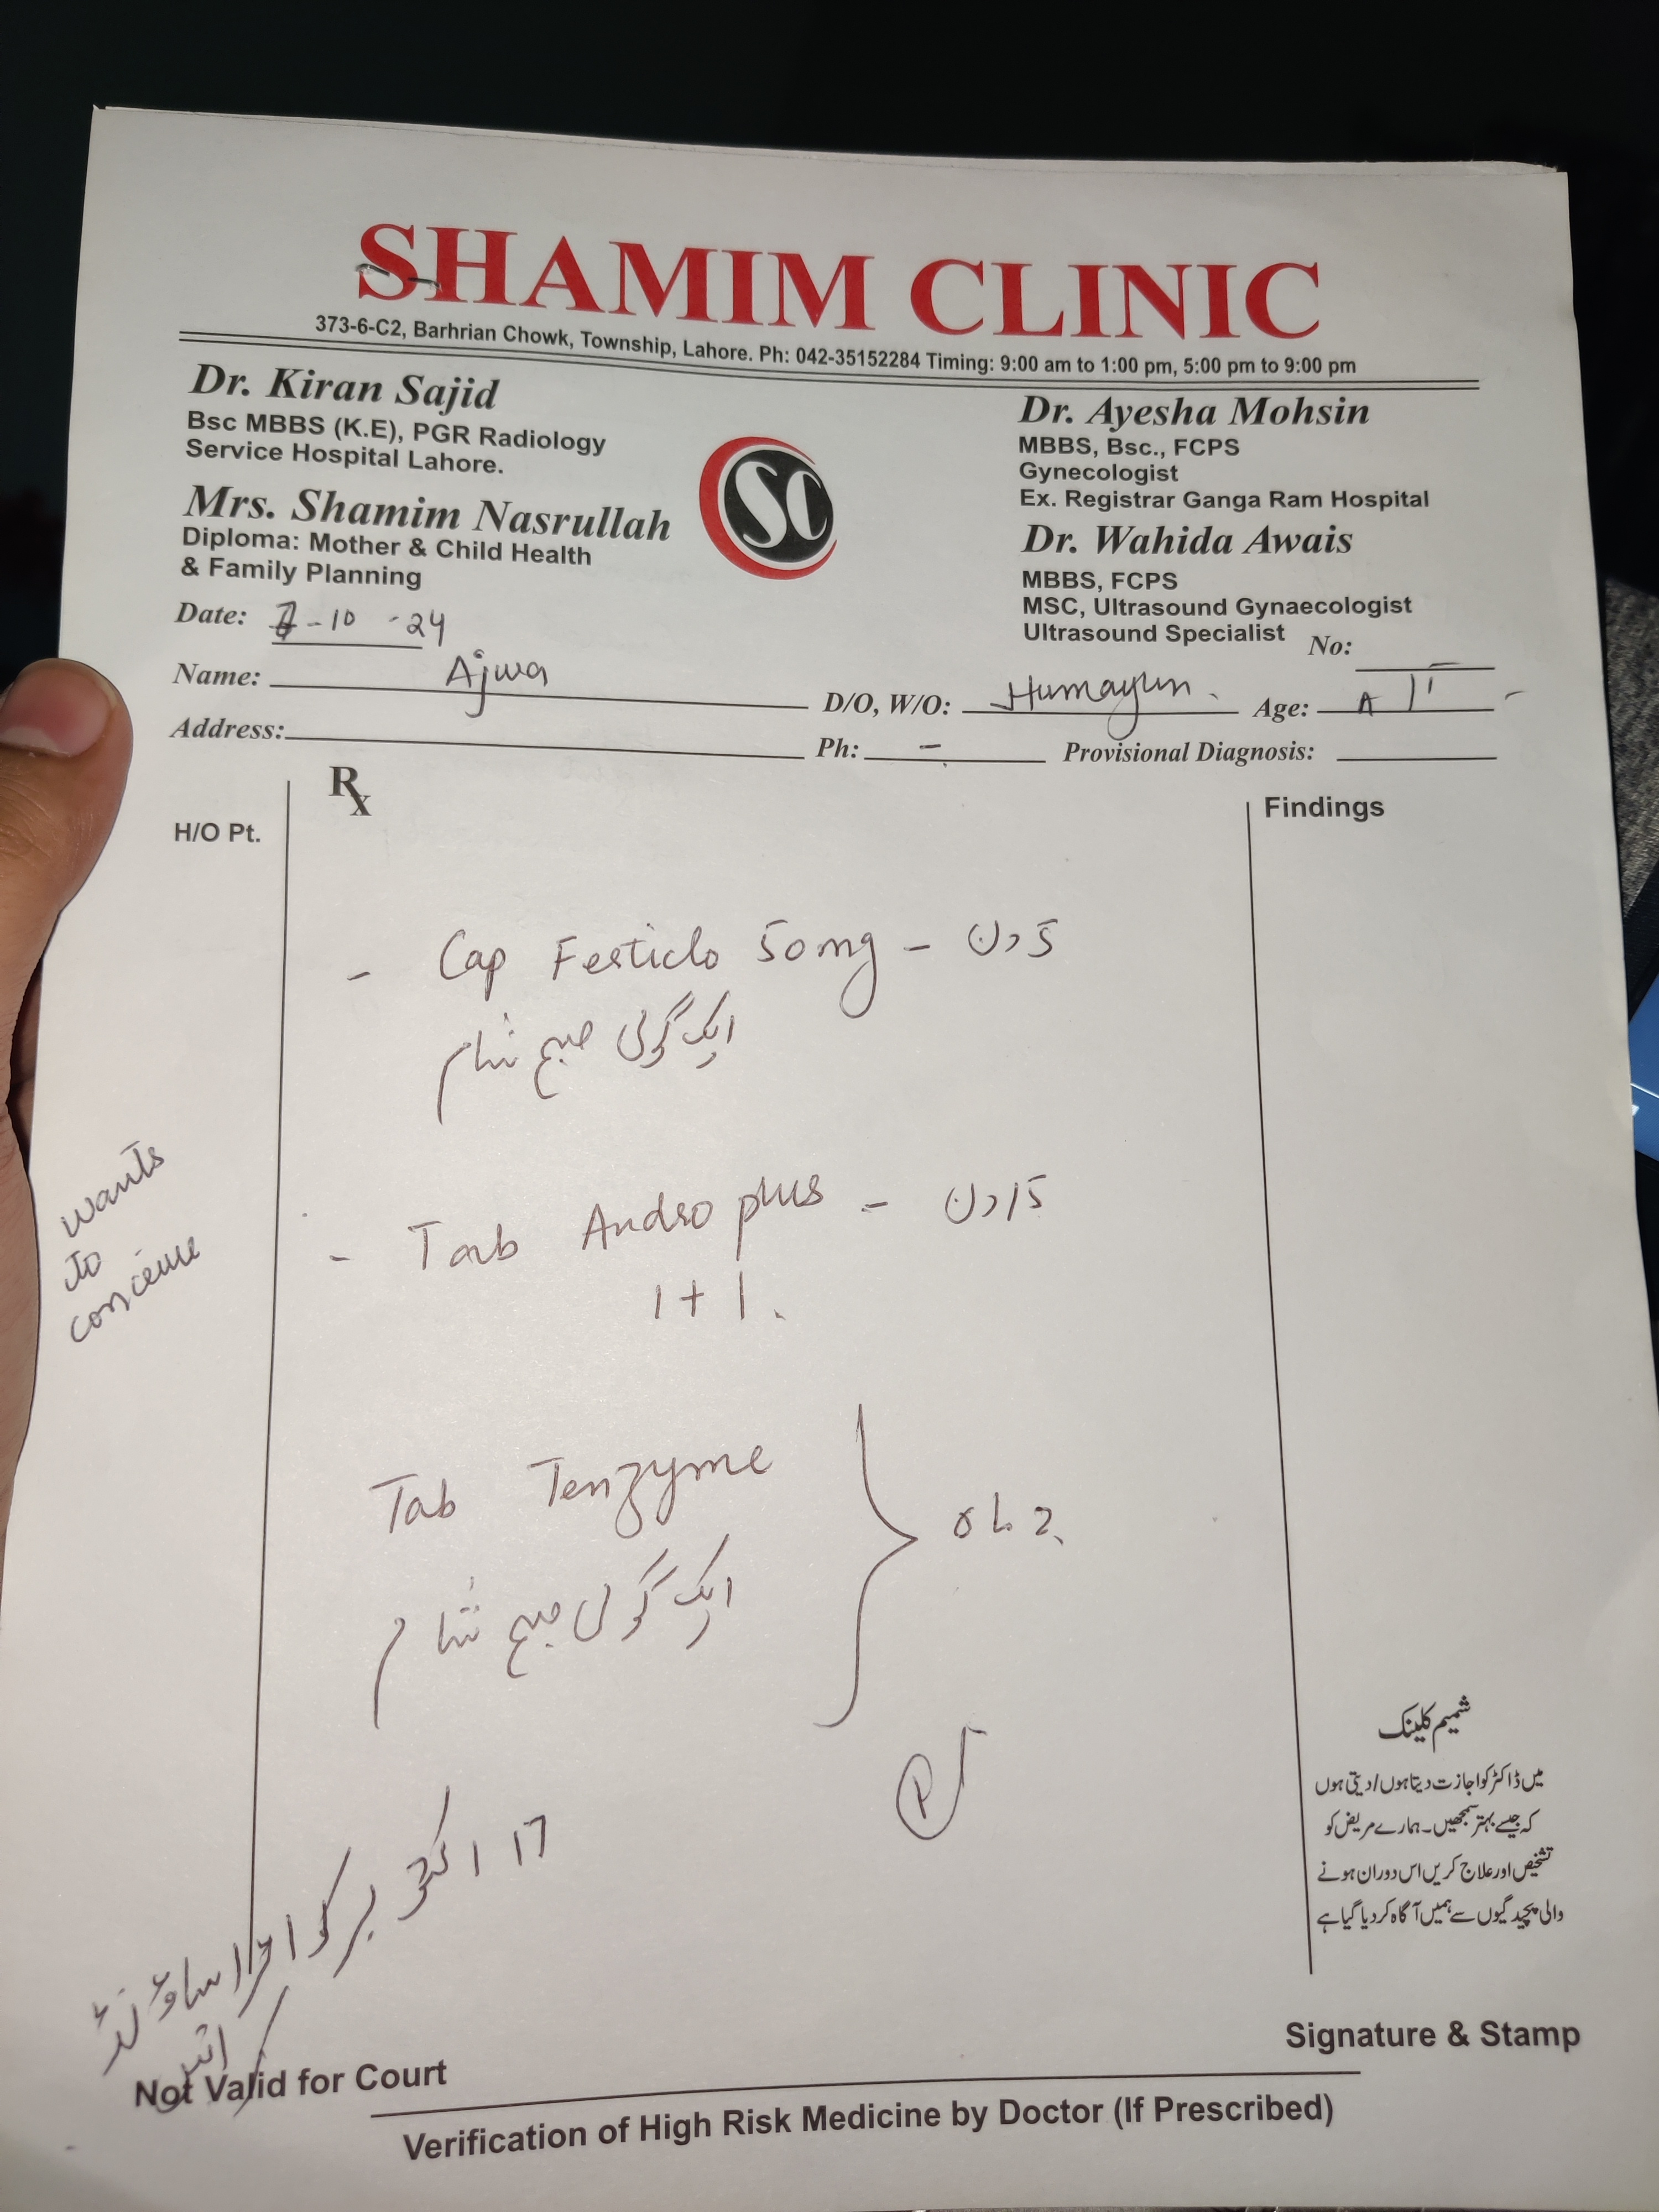 SHAMIM CLINIC
373-6-C2, Barhrian Chowk, Township, Lahore. Ph: 042-35152284 Timing: 9:00 am to 1:00 pm, 5:00 pm to 9:00 pm
Dr. Kiran Sajid
Bsc MBBS (K.E), PGR Radiology
Service Hospital Lahore.
Mrs. Shamim Nasrullah
Diploma: Mother & Child Health
& Family Planning
SC
Dr. Ayesha Mohsin
MBBS, Bsc., FCPS
Gynecologist
Ex. Registrar Ganga Ram Hospital
Dr. Wahida Awais
MBBS, FCPS
MSC, Ultrasound Gynaecologist
Ultrasound Specialist
No:
Date: 7-10-24
Name: Ajwa D/O, W/O: Humayun. Age:
Address: Ph: - Provisional Diagnosis:
H/O Pt.
Rx
Findings
- Cap 50mg - 5 دن
ایک گولی صبح شام
- Tab Andro plus - 15 دن
1+1.
wants
to
conceive
Tab Tenzyme
ایک گولی صبح شام
2 ماہ
17 اکتوبر کو الٹراساؤنڈ
کرائیں
شمیم کلینک
میں ڈاکٹر کو اجازت دیتا ہوں/دیتی ہوں
کہ جیسے بہتر سمجھیں۔ ہمارے مریض کو
تشخیص اور علاج کریں اس دوران ہونے
والی پیچیدگیوں سے ہمیں آگاہ کر دیا گیا ہے
Signature & Stamp
Not Valid for Court
Verification of High Risk Medicine by Doctor (If Prescribed)